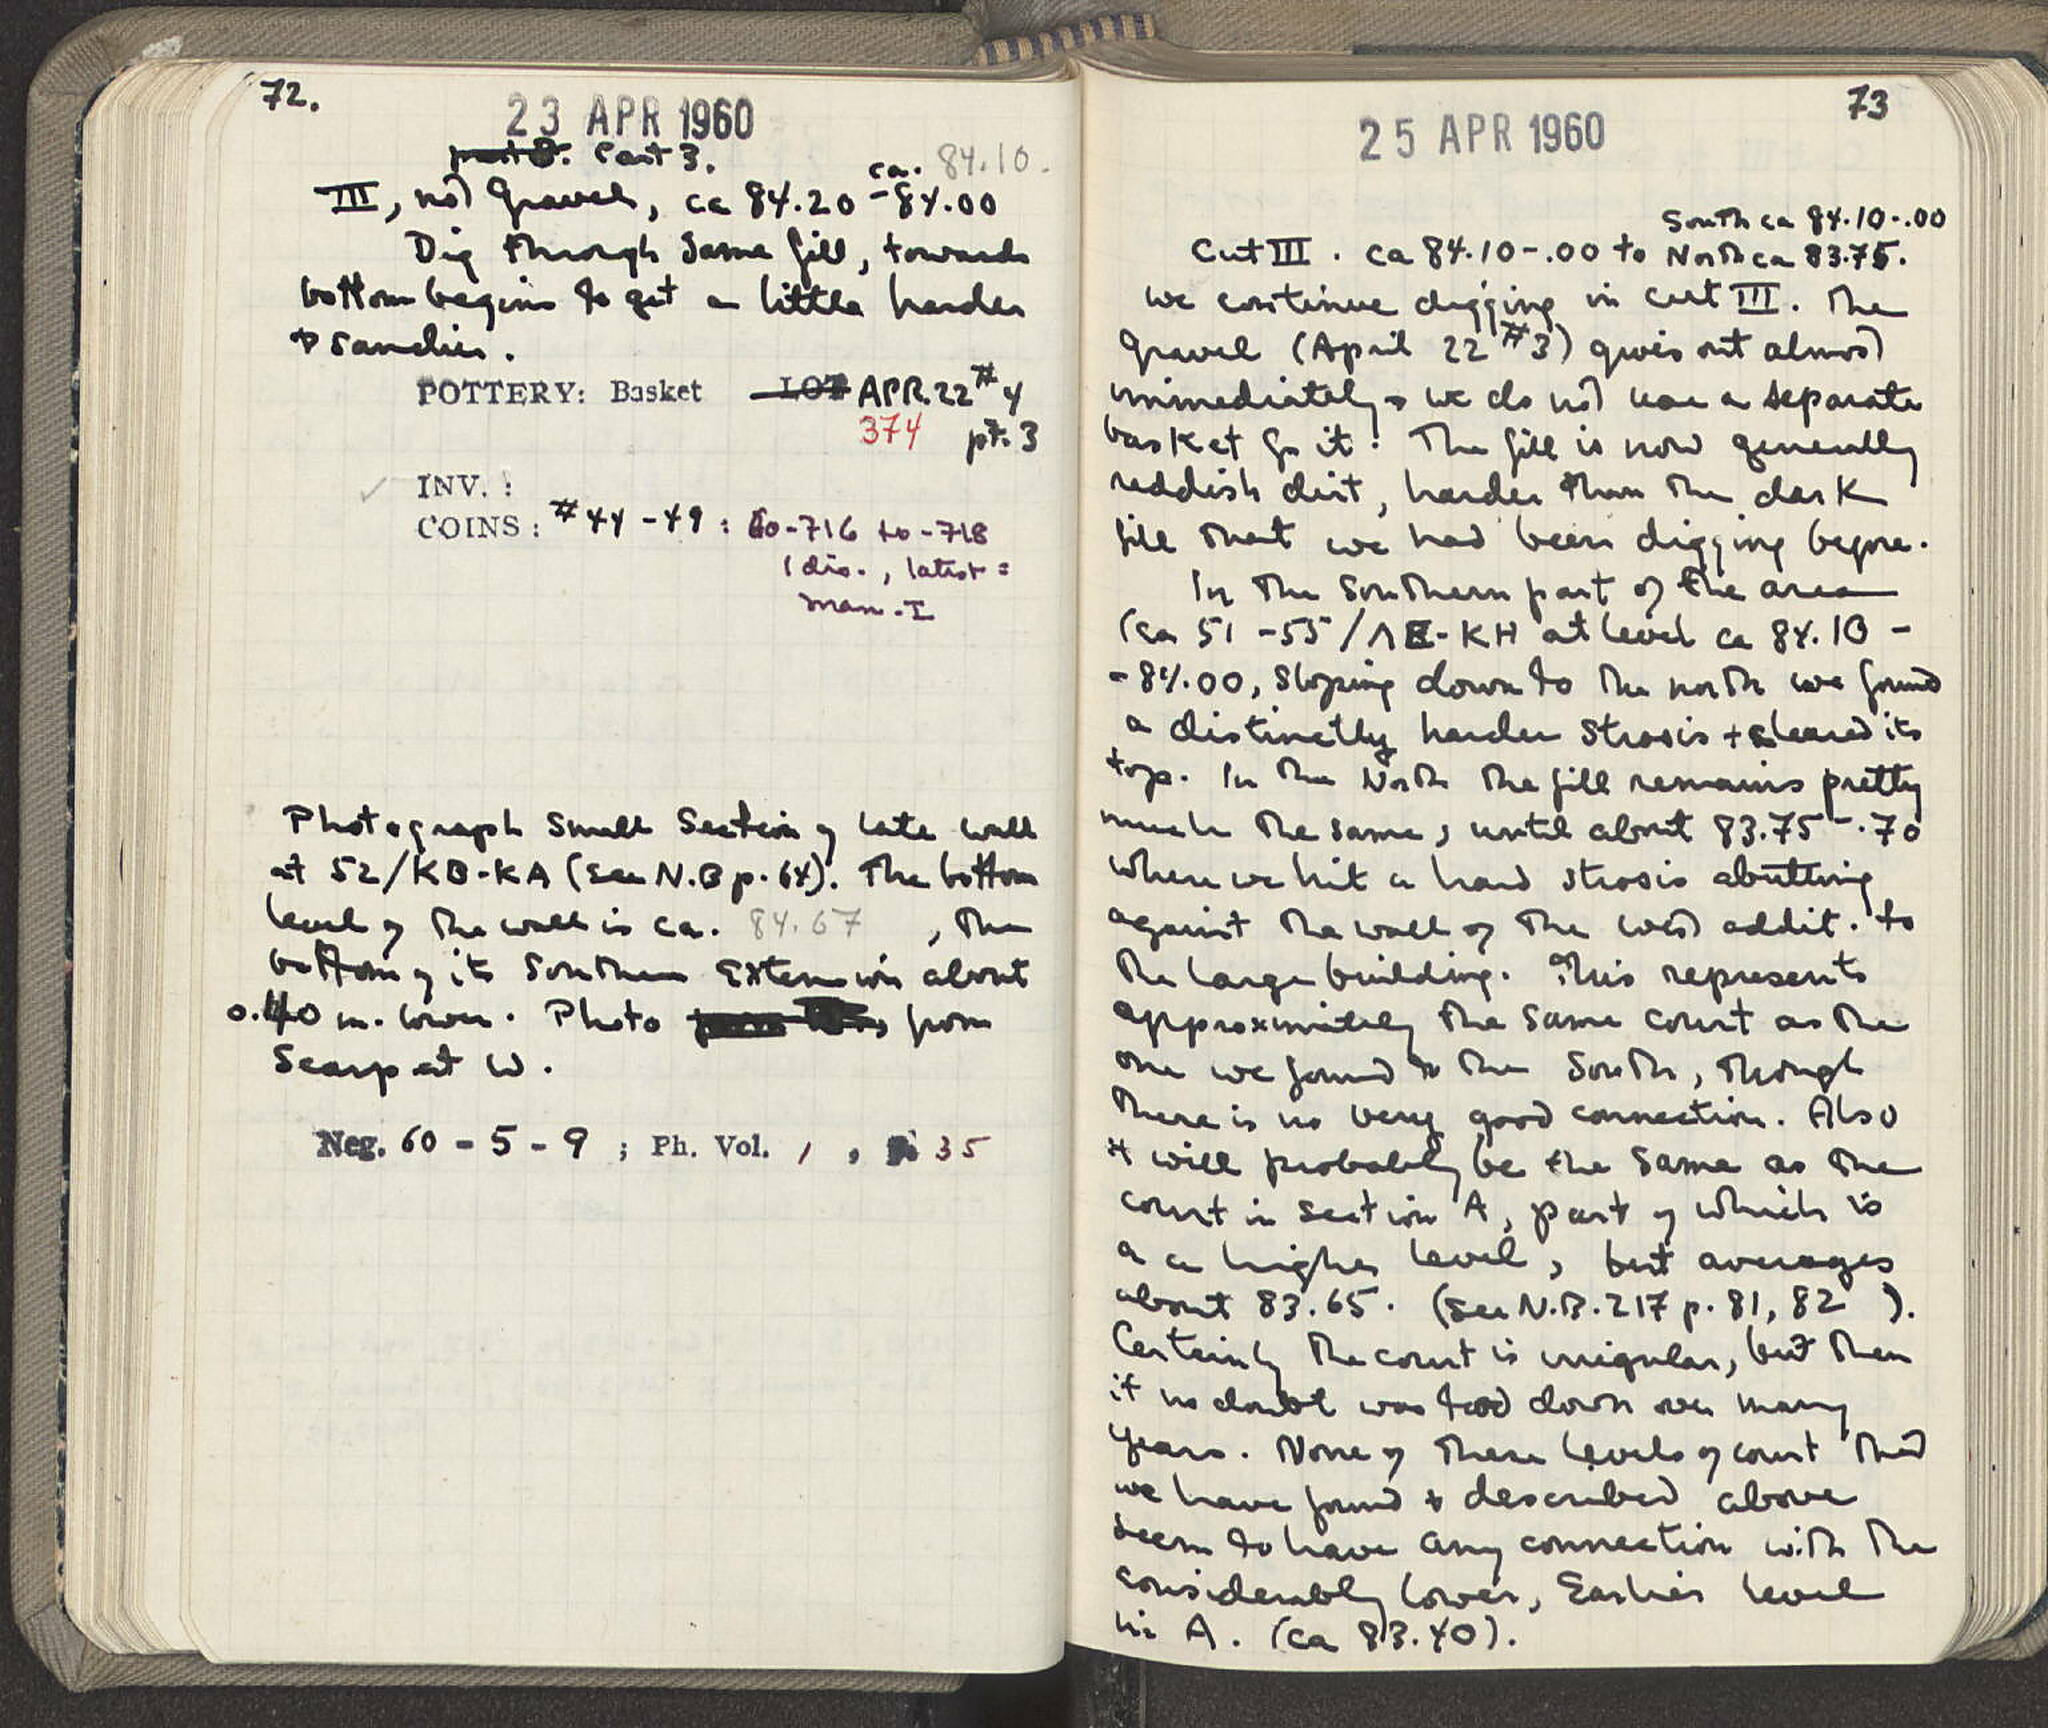 72.
23 APR 1960
Part 3.
ca. 84.10.
III, not Gravel, ca 84.20 - 84.00
Dig through same fill, towards
bottom begins to get a little harder
+ sandier.
POTTERY: Basket LOT APR. 22 #4
374 pt. 3
INV. :
COINS: #44-49 : 60-716 to -718
1 dis., latest =
man. I
Photograph small section of late wall
at 52/KB-KA (see N.B p. 64). The bottom
level of the wall is ca. 84.67 , the
bottom of its southern extension about
0.40 m. lower. Photo from
Scarp at W.
Neg. 60 - 5 - 9 ; Ph. Vol. 1 , 35
73
25 APR 1960
South ca 84.10-.00
Cut III. ca 84.10-.00 to North ca 83.75.
we continue digging in cut III. The
gravel (April 22 #3) gives out almost
immediately + we do not use a separate
basket for it. The fill is now generally
reddish dirt, harder than the dark
fill that we had been digging before.
In the southern part of the area
(ca 51-55/ΛE-KH at level ca 84.10 -
-84.00, sloping down to the north we found
a distinctly harder strosis + cleared its
top. In the North the fill remains pretty
much the same, until about 83.75-.70
where we hit a hard strosis abutting
against the wall of the west addit. to
the large building. This represents
approximately the same court as the
one we found to the South, though
there is no very good connection. Also
it will probably be the same as the
court in section A, part of which is
a a higher level, but averages
about 83.65. (see N.B. 217 p. 81, 82 ).
Certainly the court is irregular, but then
it no doubt was trod down over many
years. None of these levels of court that
we have found + described above
seem to have any connection with the
considerably lower, Earlier level
in A. (ca 83.40).